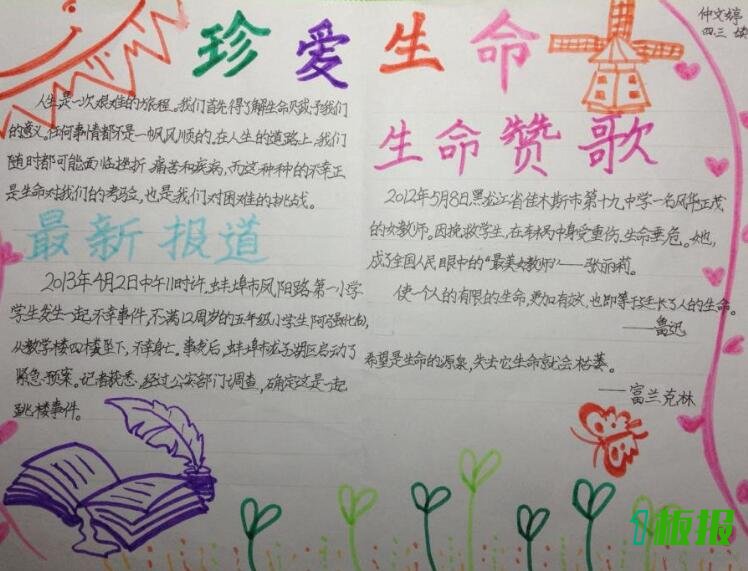 珍爱生命
仲文婷
四.三
人生是一次艰难的旅程。我们首先得了解生命赋予我们
的意义。任何事情都不是一帆风顺的,在人生的道路上,我们
随时都可能面临挫折、痛苦和疾病,而这种种的不幸正
是生命对我们的考验,也是我们对困难的挑战。
最新报道
2013年4月2日中午11时许,蚌埠市凤阳路第一小学
学生发生一起不幸事件,不满12周岁的五年级小学生阿强(化名),
从教学楼四楼坠下,不幸身亡。事发后,蚌埠市龙子湖区启动了
紧急预案。记者获悉,经过公安部门调查,确定这是一起
跳楼事件。
生命赞歌
2012年5月8日,黑龙江省佳木斯市第十九中学一名风华正茂
的女教师。因挽救学生,在车祸中身受重伤,生命垂危。她,
成了全国人民眼中的“最美女教师”——张丽莉。
使一个人的有限的生命,更加有效,也即等于延长了人的生命。
——鲁迅
希望是生命的源泉,失去它生命就会枯萎。
——富兰克林
1板报